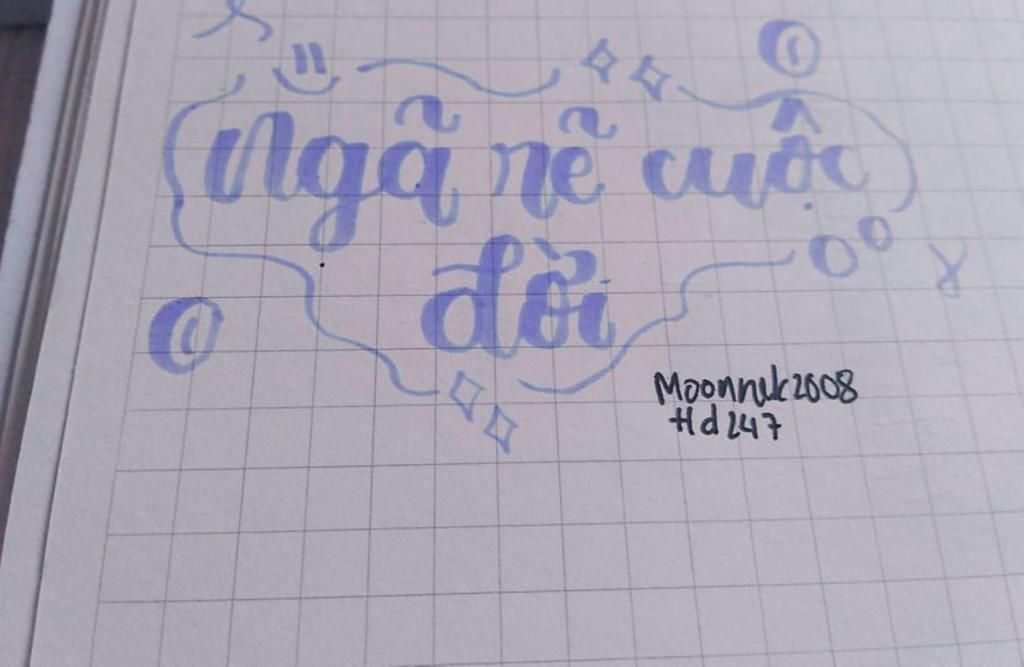 Ngã rẽ cuộc
đời
Moonnuk2008
Hd247